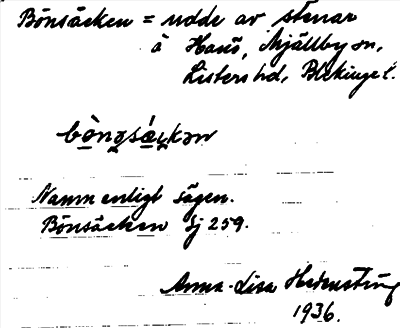 Bönsäcken = udde av stenar
å Hanö, Mjällby sn,
Listers hd, Blekinge l.
bònsǽkən
Namn enligt sägen.
Bönsäcken Sj 259.
Anna-Lisa Hedenström
1936.